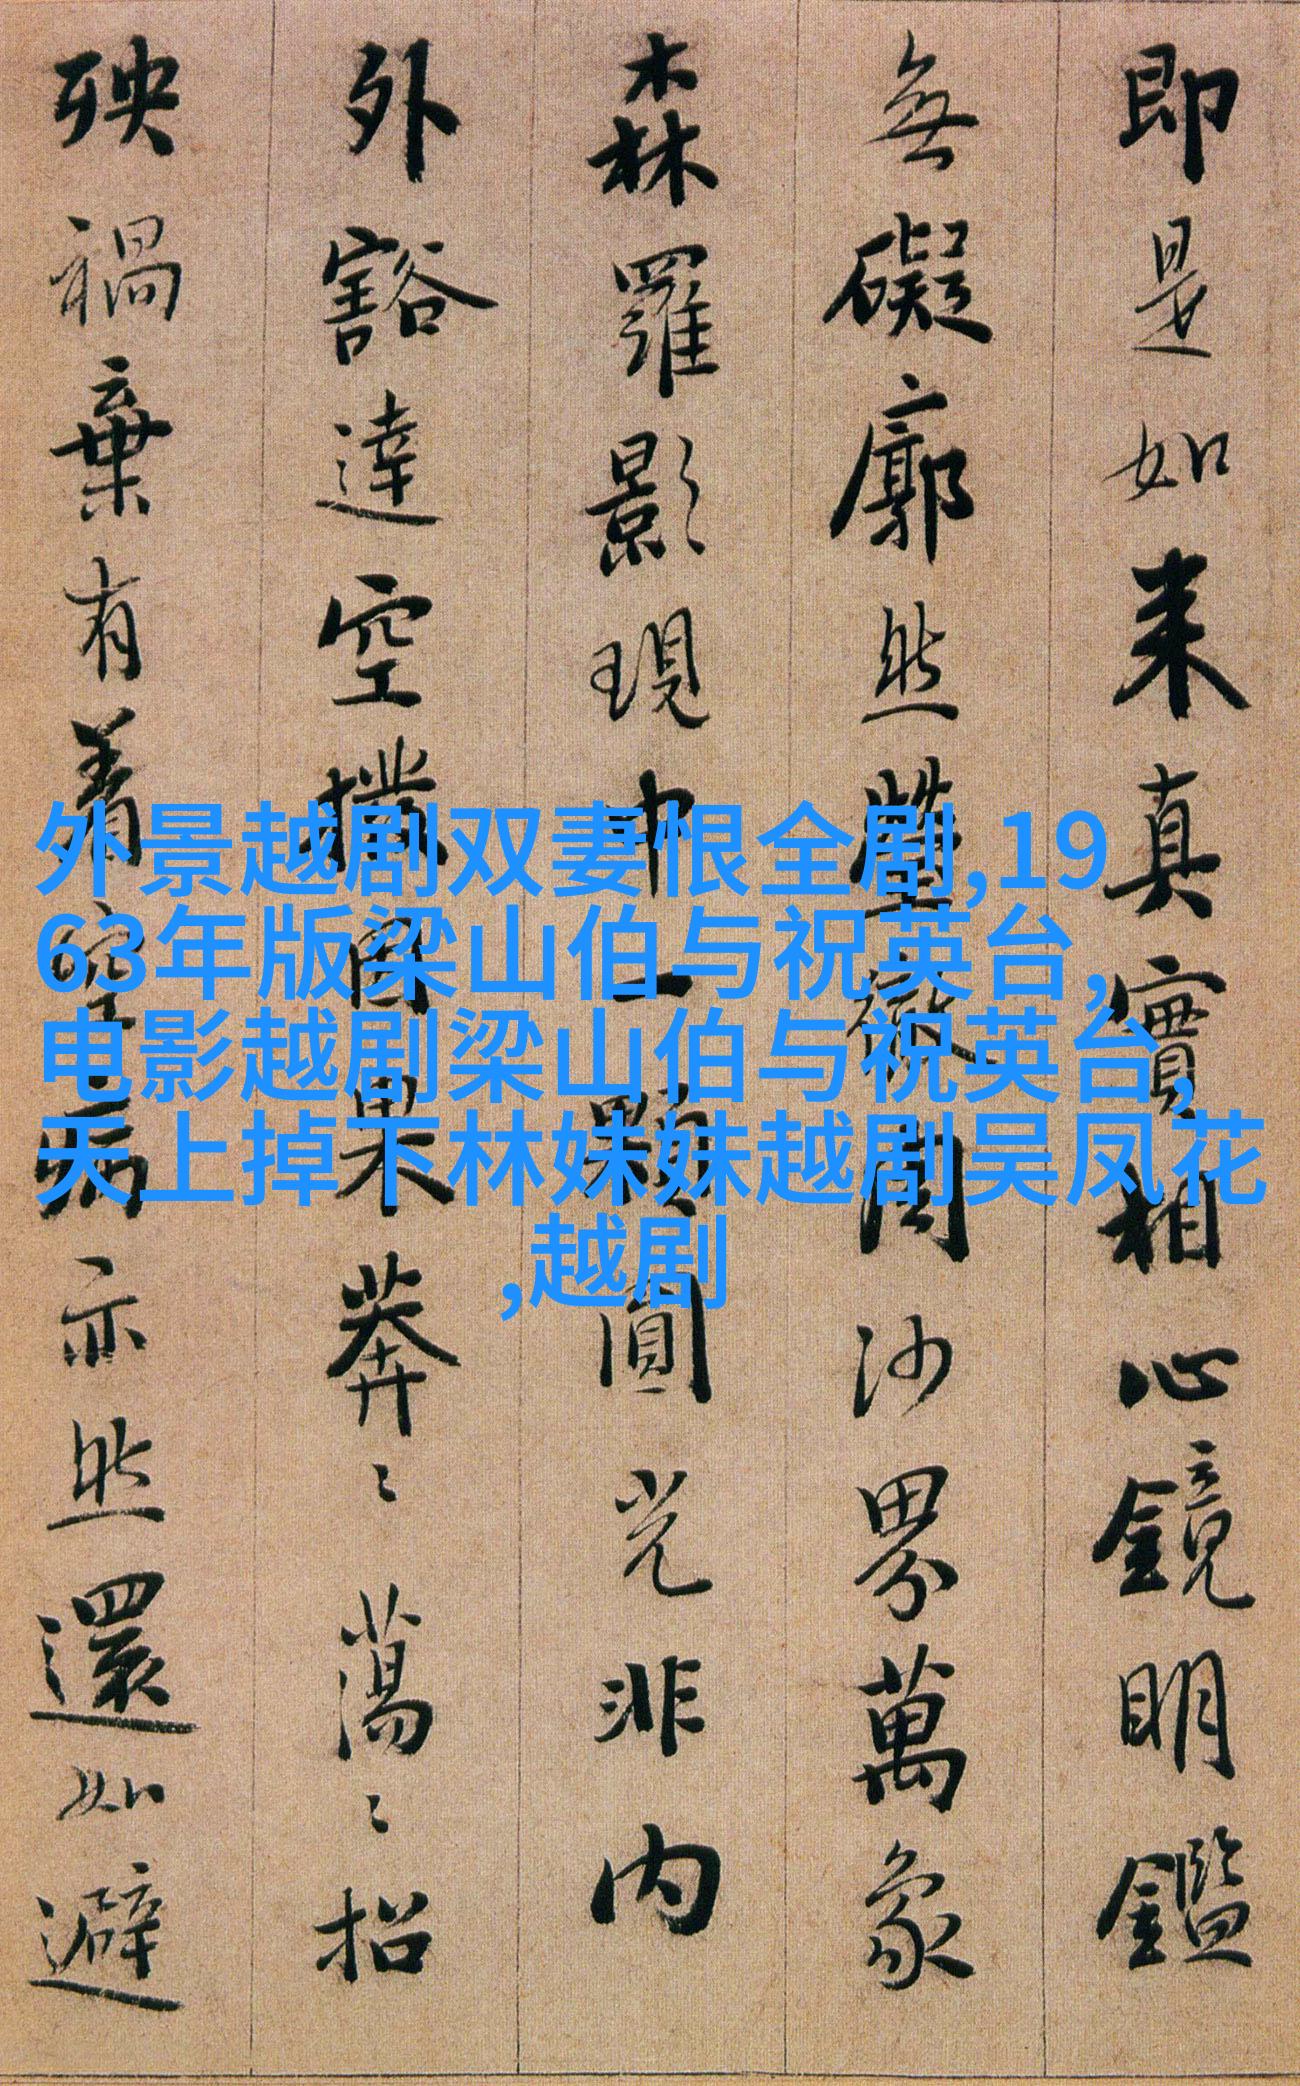 即是如来真實相心鏡明鑑
無礙廓然瑩徹周沙界萬象
森羅影現中一顆圓光非内
外豁達空撥因果莽〻蕩〻招
殃禍棄有着空病亦然還如避
外景越剧双妻恨全剧,19
63年版梁山伯与祝英台,
电影越剧梁山伯与祝英台,
天上掉下林妹妹越剧吴凤花
,越剧